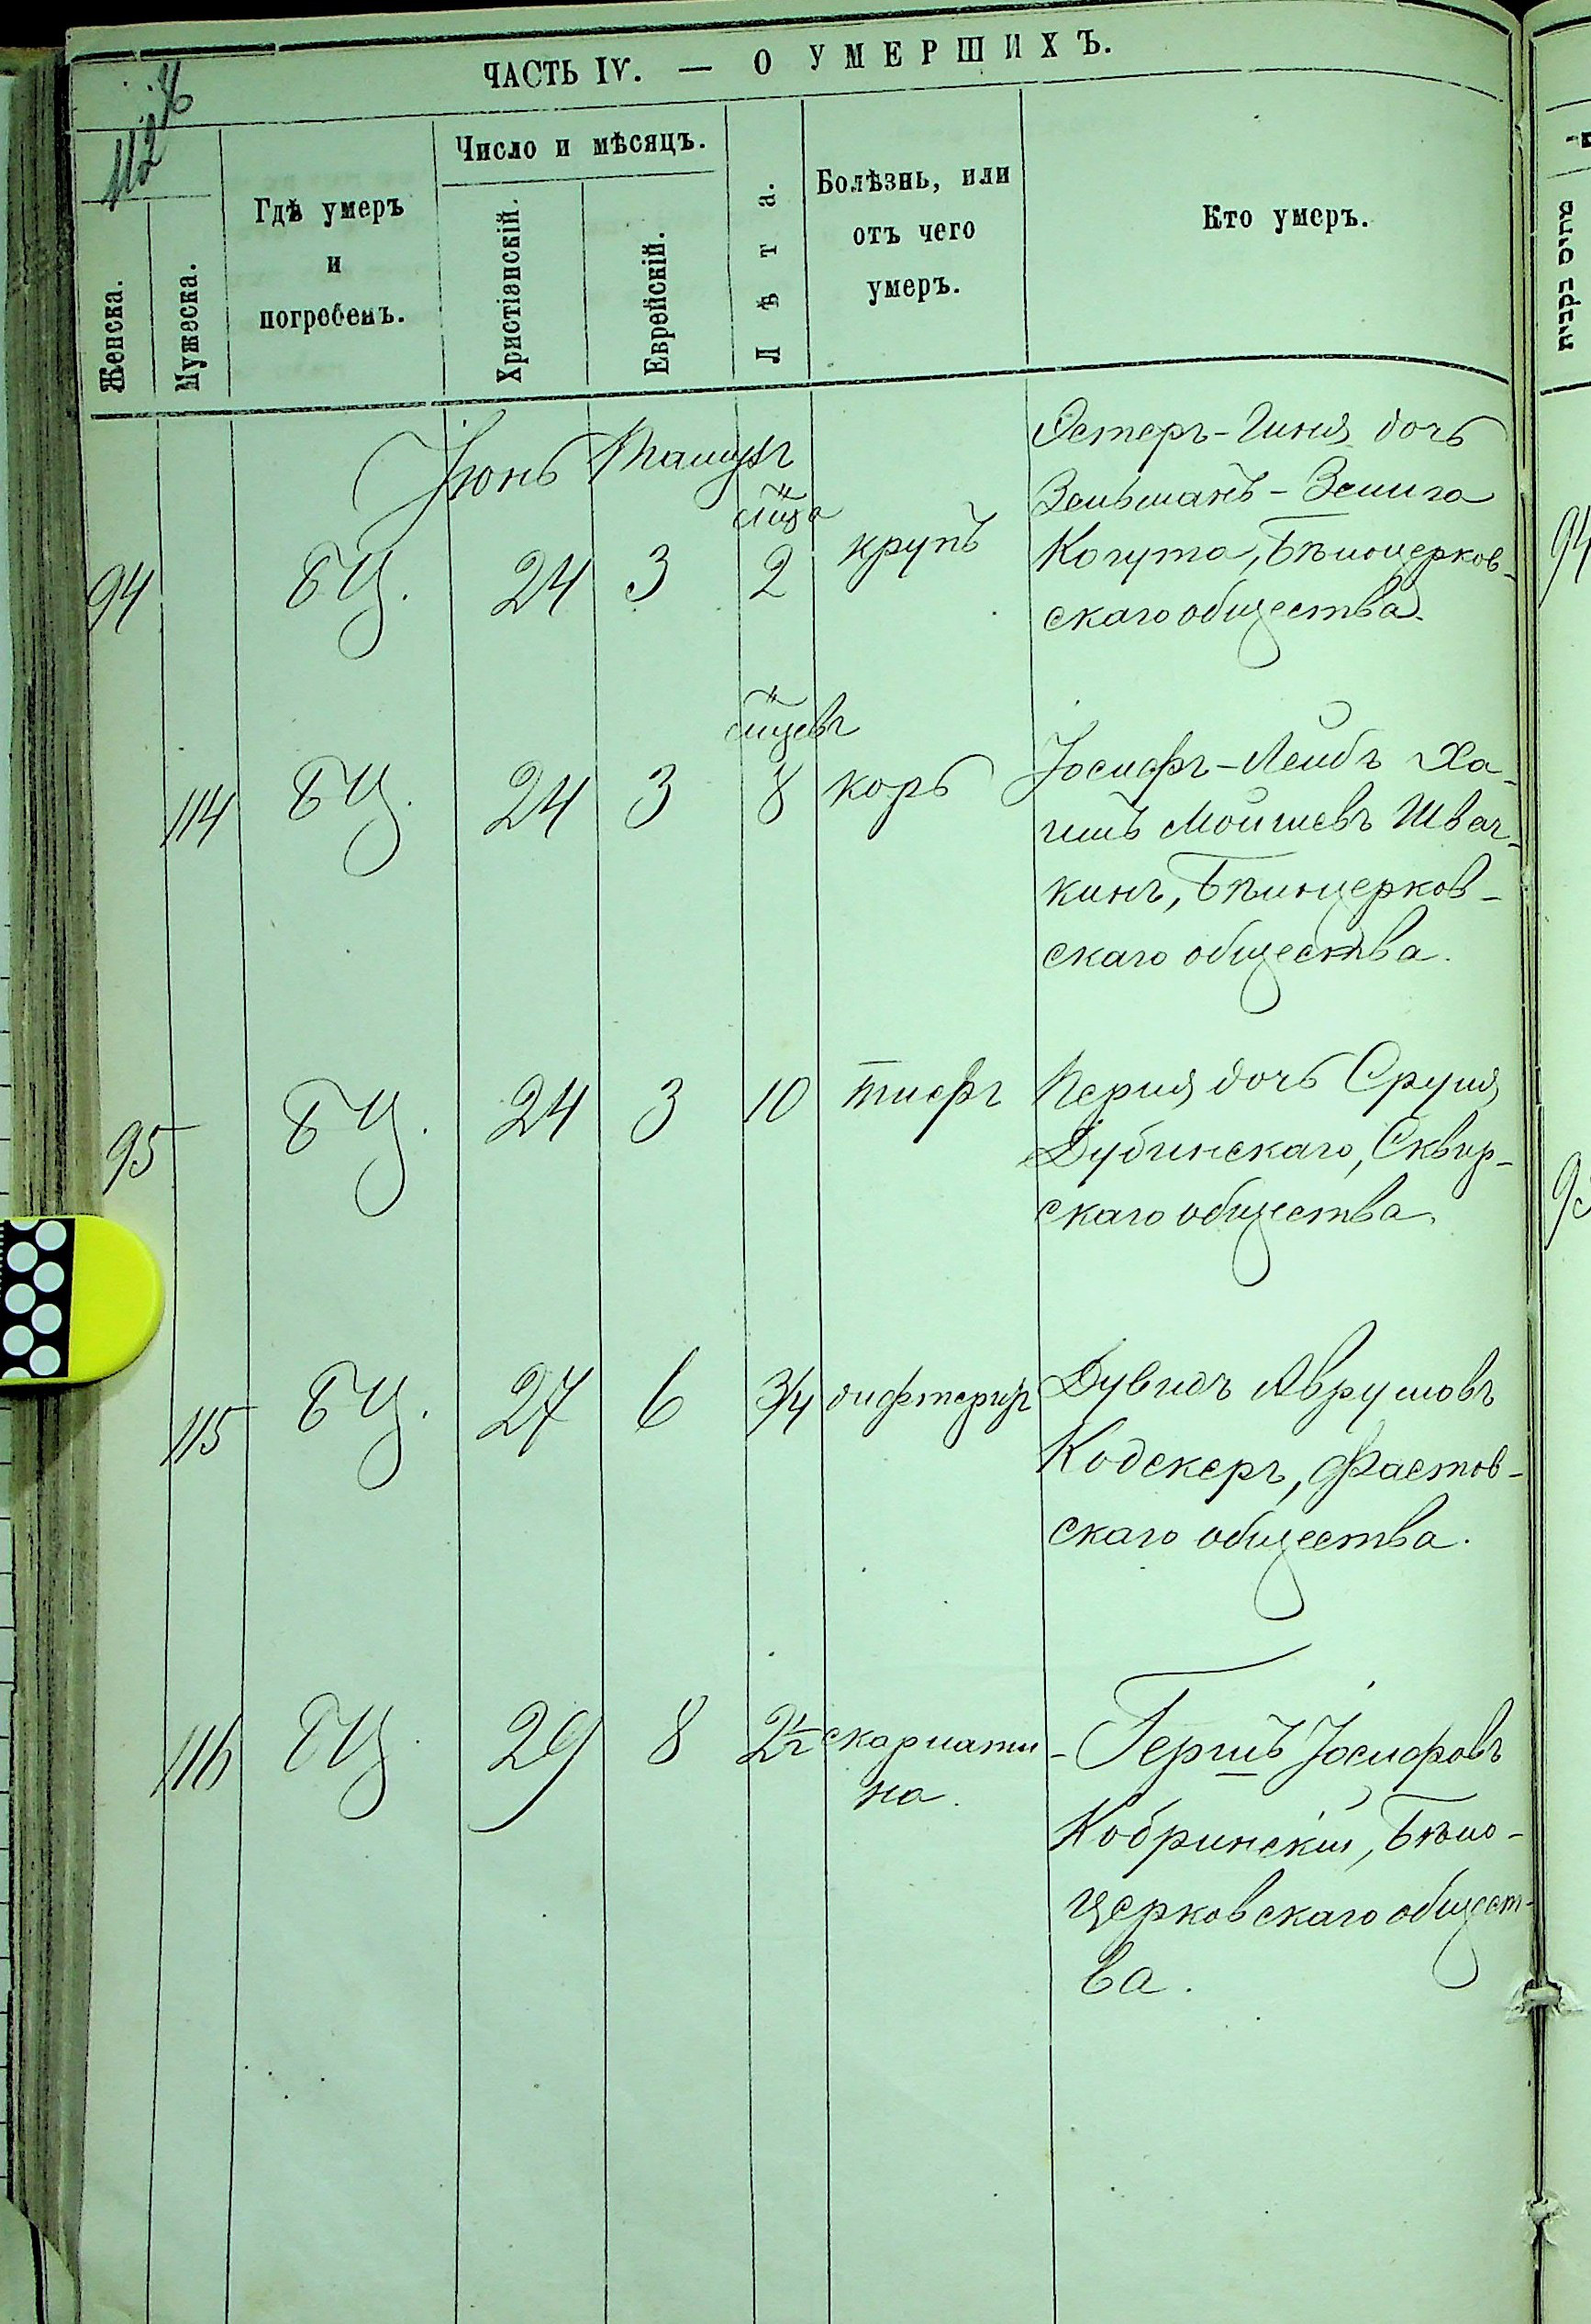 ЧАСТЬ IV. — О УМЕРШИХЪ.
112
Женска.
Мужеска.
Гдѣ умеръ
и
погребенъ.
Число и мѣсяцъ.
Христіанскій.
Еврейскій.
Лѣта.
Болѣзнь, или
отъ чего
умеръ.
Кто умеръ.
Іюнь Тамузъ
94 БЦ. 24 3 м̃ца 2 крупъ
Эстеръ-Гиня дочь
Зельманъ-Зелига
Когута, Бѣлоцерков-
скаго общества.
114 БЦ. 24 3 м̃цевъ 8 корь
Іосифъ-Лейбъ Ха-
имъ Мойшевъ Швач-
кинъ, Бѣлоцерков-
скаго общества.
95 БЦ. 24 3 10 тифъ
Перля дочь Сруля
Дубинскаго, Сквир-
скаго общества.
115 БЦ. 27 6 3/4 дифтеритъ
Дувидъ Аврумовъ
Кодскеръ, Фастов-
скаго общества.
116 БЦ. 29 8 2½ скарлати-
на.
Гершъ Іосифовъ
Кобринскій, Бѣло-
церковскаго общест-
ва.
94
95